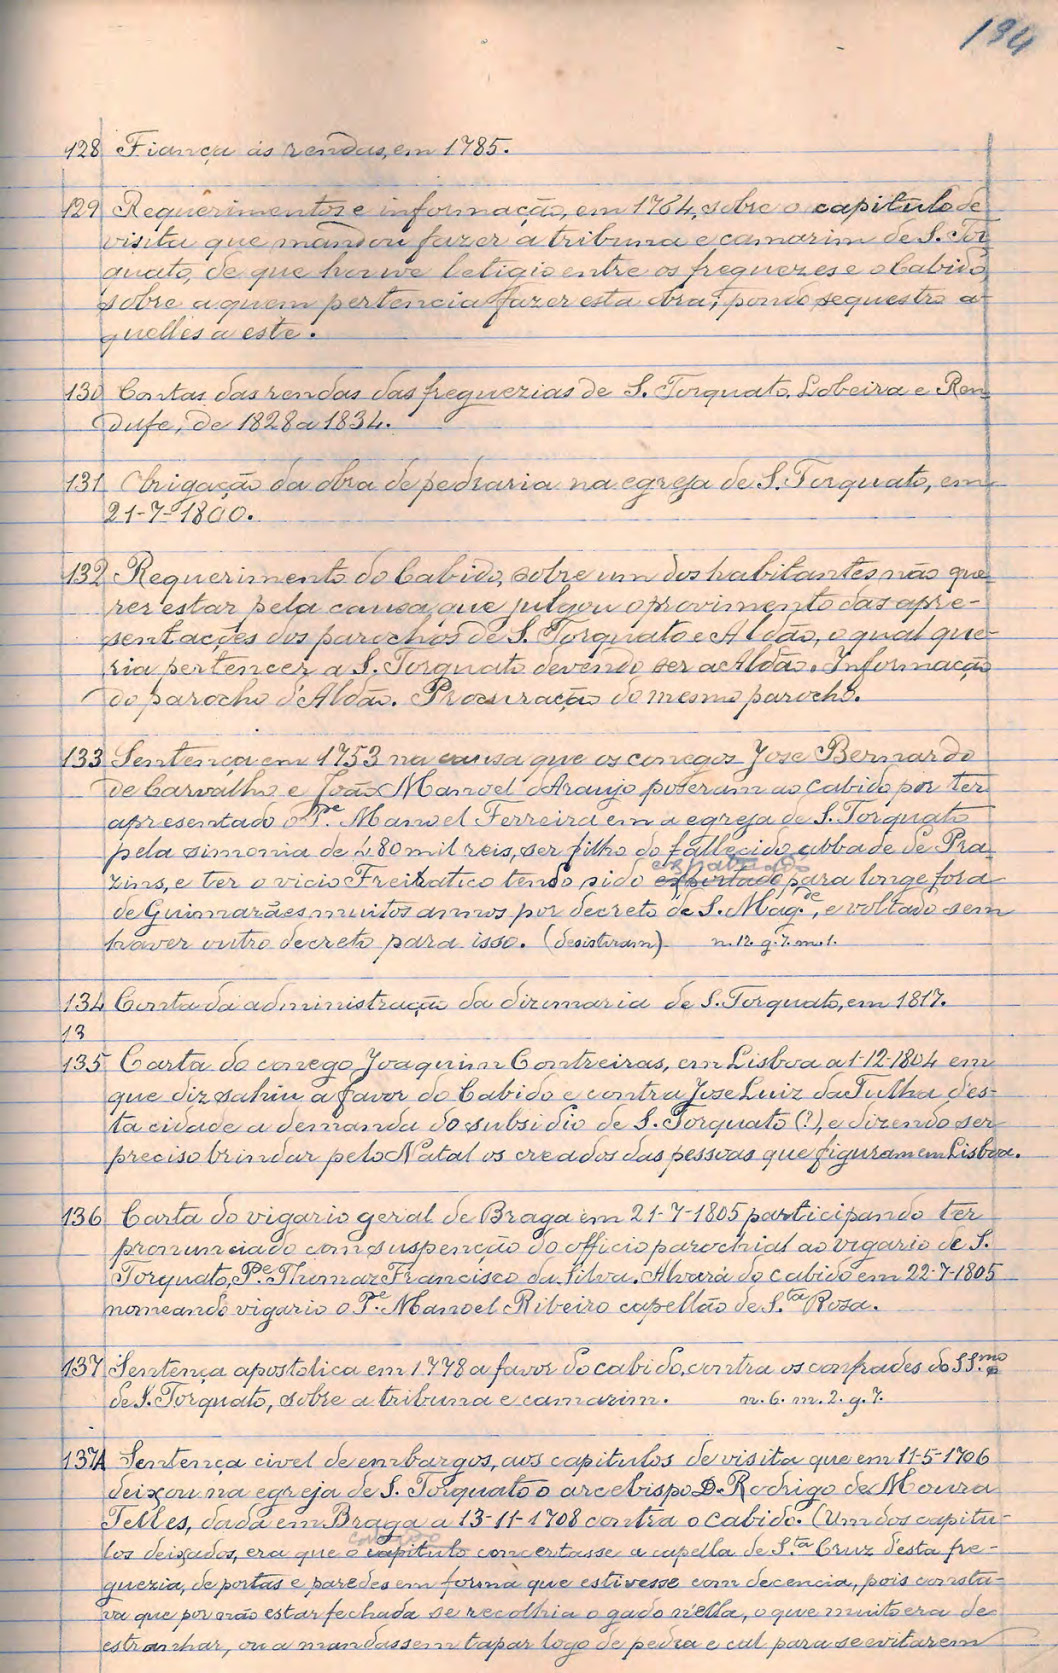 134
128 Fiança ás rendas, em 1785.
129 Requerimentos e informação, em 1764, sobre o capitulo de
visita que mandou fazer a tribuna e camarim de S. Tor
quato, de que houve letigio entre os freguezes e o Cabido,
sobre a quem pertencia fazer esta obra; pondo sequestro a-
quelles a este.
130 Contas das rendas das freguezias de S. Torquato, Lobeira e Ren
dufe, de 1828 a 1834.
131 Obrigação da obra de pedraria na egreja de S. Torquato, em
21-7-1800.
132 Requerimento do Cabido, sobre um dos habitantes não que
rer estar pela causa, que julgou o provimento das apre-
sentações dos parochos de S. Torquato e Aldão, o qual que-
ria pertencer a S. Torquato devendo ser a Aldão. Informação
do parocho d'Aldão. Procuração do mesmo parocho.
133 Sentença em 1753 na causa que os conegos Jose Bernardo
de Carvalho e João Manoel d'Araujo poseram ao cabido por ter
apresentado o Pe. Manoel Ferreira em a egreja de S. Torquato
pela simonia de 480 mil reis, ser filho do fallecido abbade de Pra
zins, e ter o vicio Freiratico tendo sido para longe fora
de Guimarães muitos annos por decreto de S. Mag.de, e voltado sem
haver outro decreto para isso. (desistiram) n. 12. g. 7. m. 1.
134 Conta da administração da dizimaria de S. Torquato, em 1817.
13
135 Carta do conego Joaquim Contreiras, em Lisboa a 1-12-1804 em
que diz sahiu a favor do Cabido e contra Jose Luiz da Tulha des-
ta cidade a demanda do subsidio de S. Torquato (?), e dizendo ser
preciso brindar pelo Natal os creados das pessoas que figuram em Lisboa.
136 Carta do vigario geral de Braga em 21-7-1805 participando ter
pronunciado com suspenção do officio parochial ao vigario de S.
Torquato, Pe. Thomaz Francisco da Silva. Alvará do cabido em 22-7-1805
nomeando vigario o Pe. Manoel Ribeiro capellão de S.ta Rosa.
137 Sentença apostolica em 1778 a favor do cabido, contra os confrades do SS.mo
de S. Torquato, sobre a tribuna e camarim. n. 6. m. 2. g. 7.
137A Sentença civel de embargos, aos capitulos de visita que em 11-5-1706
deixou na egreja de S. Torquato o arcebispo D. Rodrigo de Moura
Telles, dada em Braga a 13-11-1708 contra o cabido. (Um dos capitu-
los deixados, era que o capitulo concertasse a capella de S.ta Cruz desta fre-
guezia, de portas e paredes em forma que estivesse com decencia, pois consta-
va que por não estar fechada se recolhia o gado n'ella, o que muito era de
estranhar, ou a mandassem tapar logo de pedra e cal para se evitarem